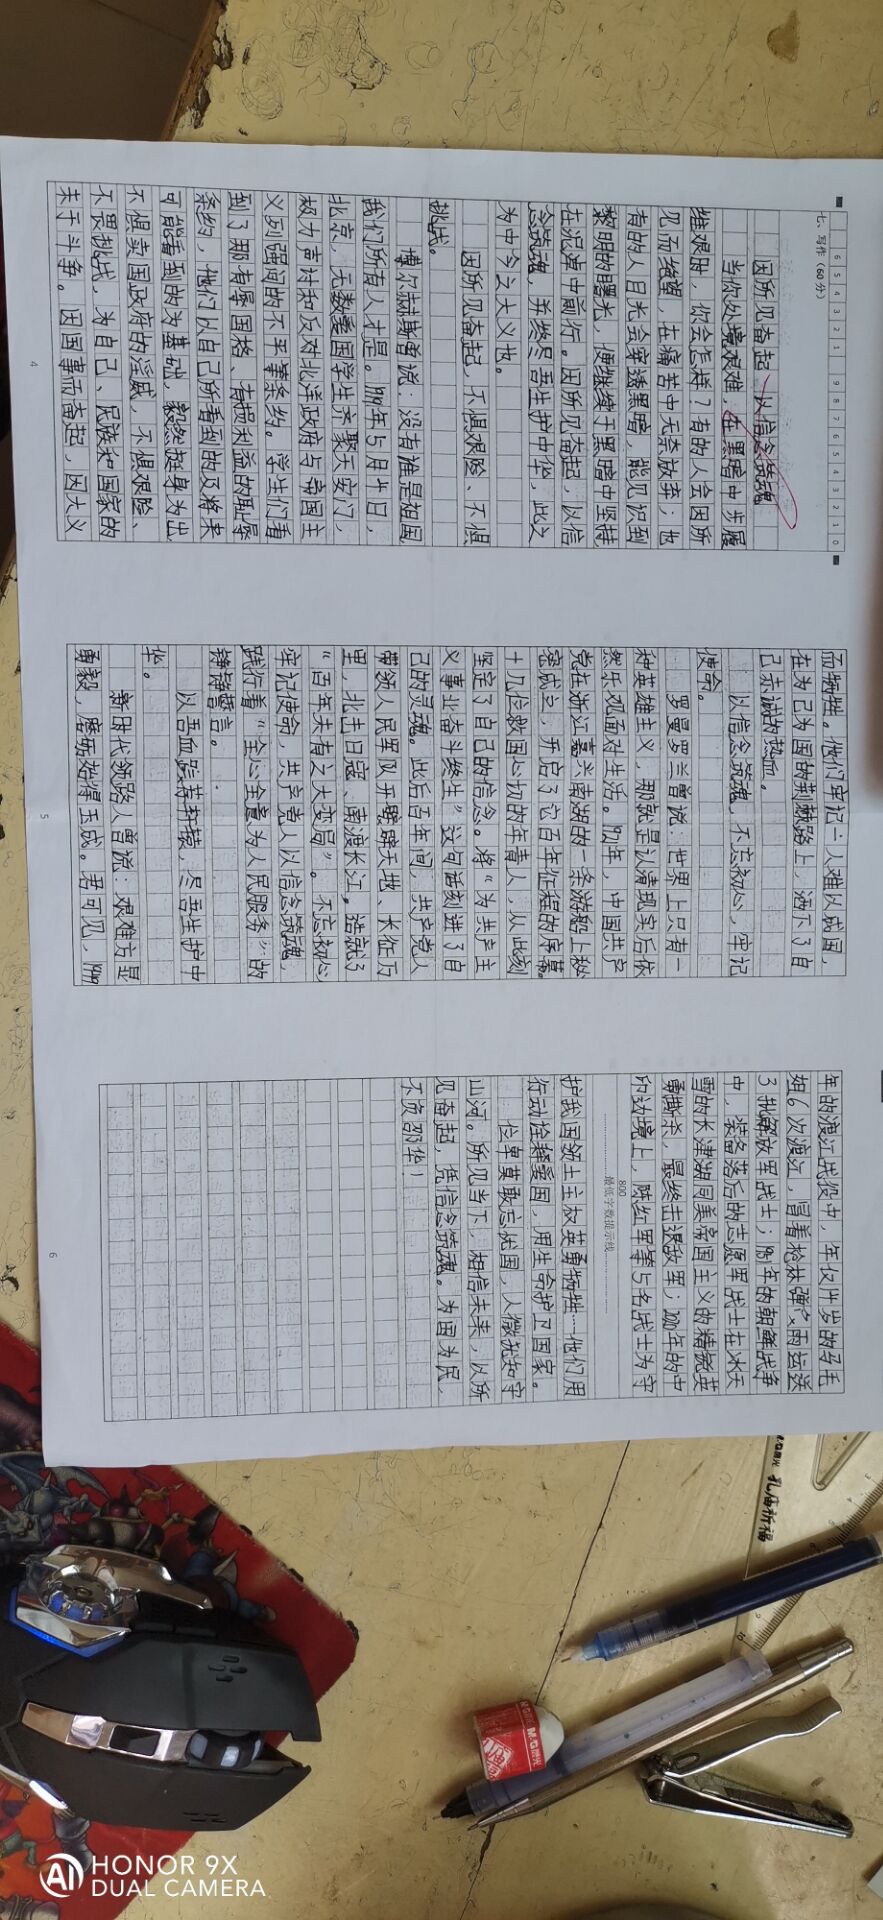 七、写作（60分）
6 5 4 3 2 1 9 8 7 6 5 4 3 2 1 0
因所见奋起 以信念筑魂
当你处境艰难，在黑暗中步履
维艰时，你会怎样？有的人会因所
见而绝望，在痛苦中无奈放弃；也
有的人目光会穿透黑暗，能见识到
黎明的曙光，便继续于黑暗中坚持
在泥淖中前行。因所见奋起，以信
念筑魂，并终尽吾生护中华，此之
为中今之大义也。
因所见奋起，不惧艰险、不惧
挑战。
博尔赫斯曾说：没有谁是祖国，
我们所有人才是。1919年5月4日，
北京，无数爱国学生齐聚天安门，
极力声讨和反对北洋政府与帝国主
义列强间的不平等条约。学生们看
到了那有辱国格、有损利益的耻辱
条约，他们以自己所看到的及将来
可能看到的为基础，毅然挺身为出，
不惧卖国政府的淫威，不惧艰险、
不畏挑战，为自己、民族和国家的
关于斗争。因国事而奋起，因大义
4
而牺牲。他们牢记：人难以成国，
在为己为国的荆棘路上，洒下了自
己赤诚的热血。
以信念筑魂，不忘初心，牢记
使命。
罗曼罗兰曾说：世界上只有一
种英雄主义，那就是认清现实后依
然乐观面对生活。1921年，中国共产
党在浙江嘉兴南湖的一条游船上秘
密成立，开启了它百年征程的序幕。
十几位救国心切的年青人，从此刻
坚定了自己的信念。将“为共产主
义事业奋斗终生”这句话刻进了自
己的灵魂。此后百年间，共产党人
带领人民军队开天辟地、长征万
里，北击日寇、南渡长江。造就了
“百年未有之大变局”。不忘初心
牢记使命，共产党人以信念筑魂，
践行着“全心全意为人民服务”的
铮铮誓言。
以吾血践荐轩辕，尽吾生护中
华。
新时代领路人曾说：艰难方显
勇毅，磨砺始得玉成。君可见，1949
5
年的渡江战役中，年仅14岁的马毛
姐6次渡江，冒着枪林弹雨运送
3批解放军战士；1951年的朝鲜战争
中，装备落后的志愿军战士在冰天
雪的长津湖同美帝国主义的精锐英
勇厮杀，最终击退敌军；2020年的中
印边境上，陈红军等5名战士为守
800
最低字数提示线
护我国领土主权英勇牺牲……他们用
行动诠释爱国，用生命护卫国家。
位卑莫敢忘忧国，人微犹知守
山河。所见当下，相信未来，以所
见奋起，凭信念筑魂。为国为民，
不负韶华！
6
孔庙祈福
M&G晨光
HONOR 9X
AI DUAL CAMERA